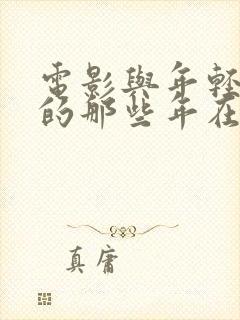 電影與年輕
的那些年在
真庸